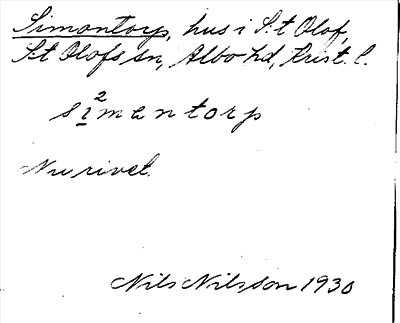 Simontorp, hus i S:t Olof,
S:t Olofs sn, Albo hd, Krist. l.
si²mantorp
Nu rivet.
Nils Nilsson 1930